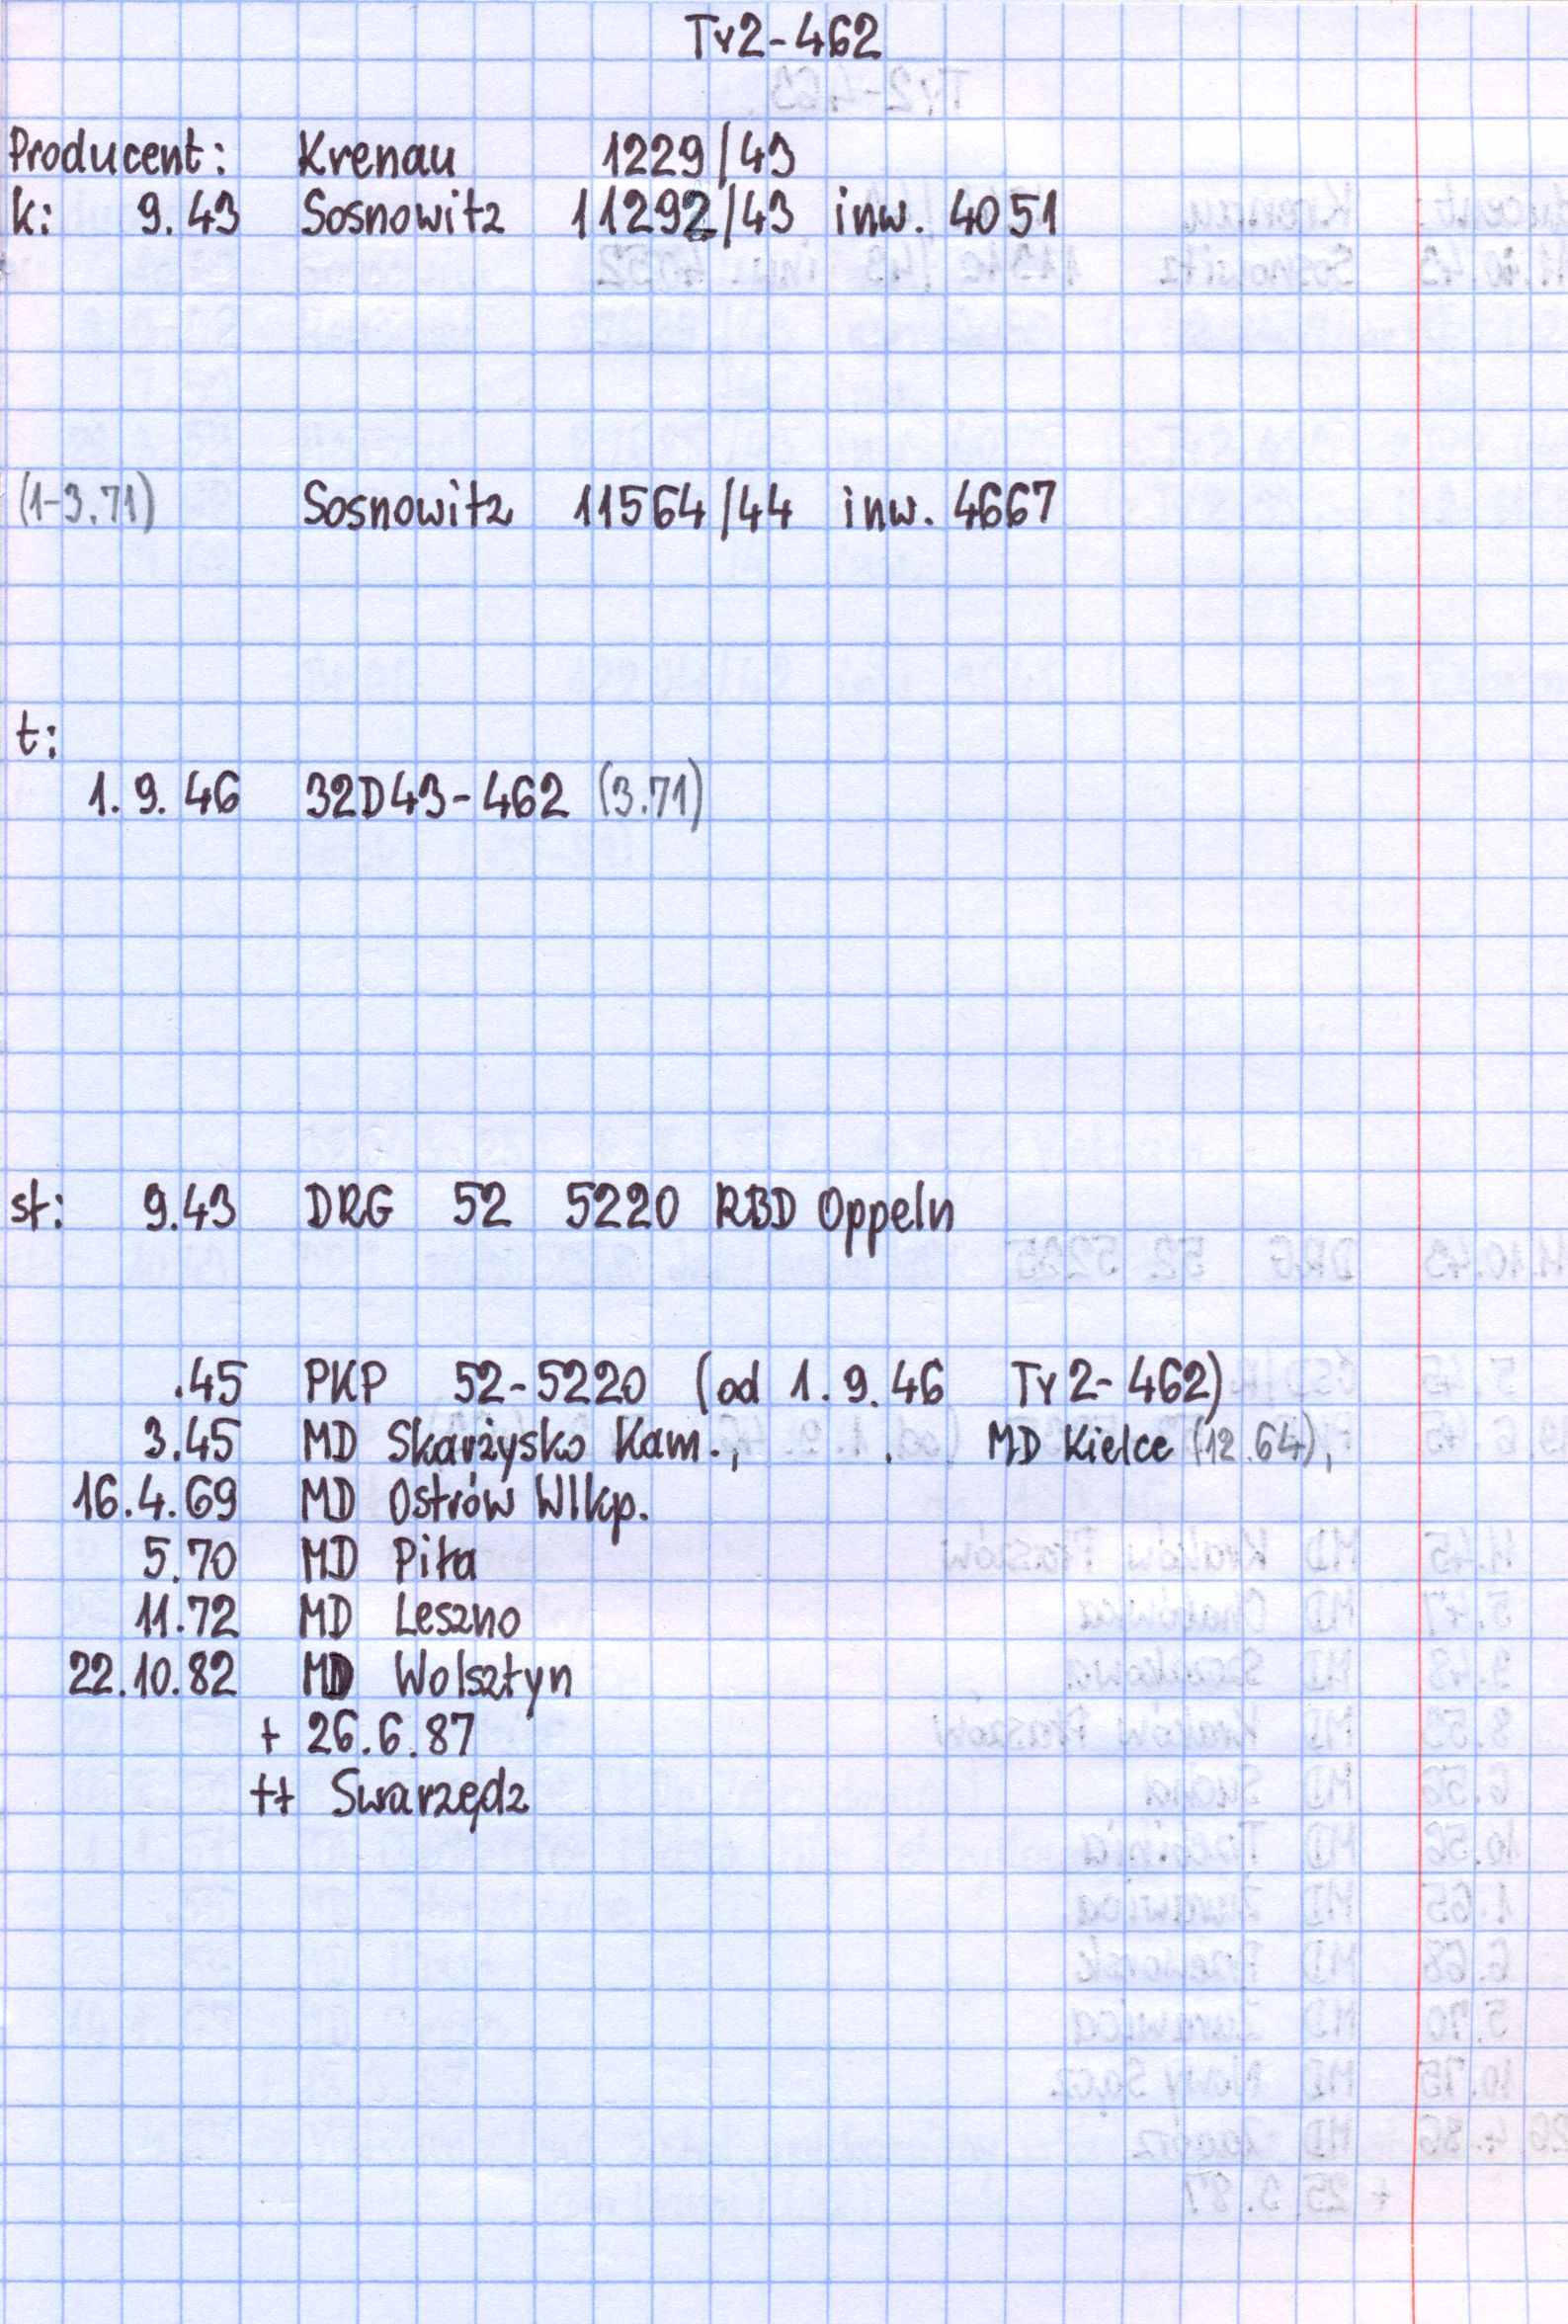 Ty2-462
Producent: Krenau 1229/43
k: 9.43 Sosnowitz 11292/43 inw. 4051
(1-3.71) Sosnowitz 11564/44 inw. 4667
t:
1.9.46 32D43-462 (3.71)
st: 9.43 DRG 52 5220 RBD Oppeln
.45 PKP 52-5220 (od 1.9.46 Ty2-462)
3.45 MD Skarżysko Kam., . MD Kielce (12.64),
16.4.69 MD Ostrów Wlkp.
5.70 MD Piła
11.72 MD Leszno
22.10.82 MD Wolsztyn
+ 26.6.87
++ Swarzędz